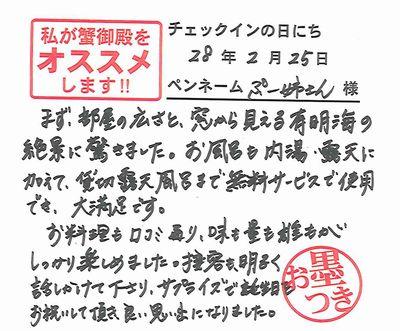 私が蟹御殿を
オススメ
します!!
チェックインの日にち
28年2月25日
ペンネーム ぷー姉さん 様
まず、部屋の広さと、窓から見える有明海の
絶景に驚きました。お風呂も内湯・露天に
加えて、貸切露天風呂まで無料サービスで使用
でき、大満足です。
お料理も口コミ通り、味も量も雄もかじ
しっかり楽しめました。接客も、明るく
話しかけて下さり、サプライズで誕生日を
お祝いして頂き、良い思い出になりました。
お墨つき